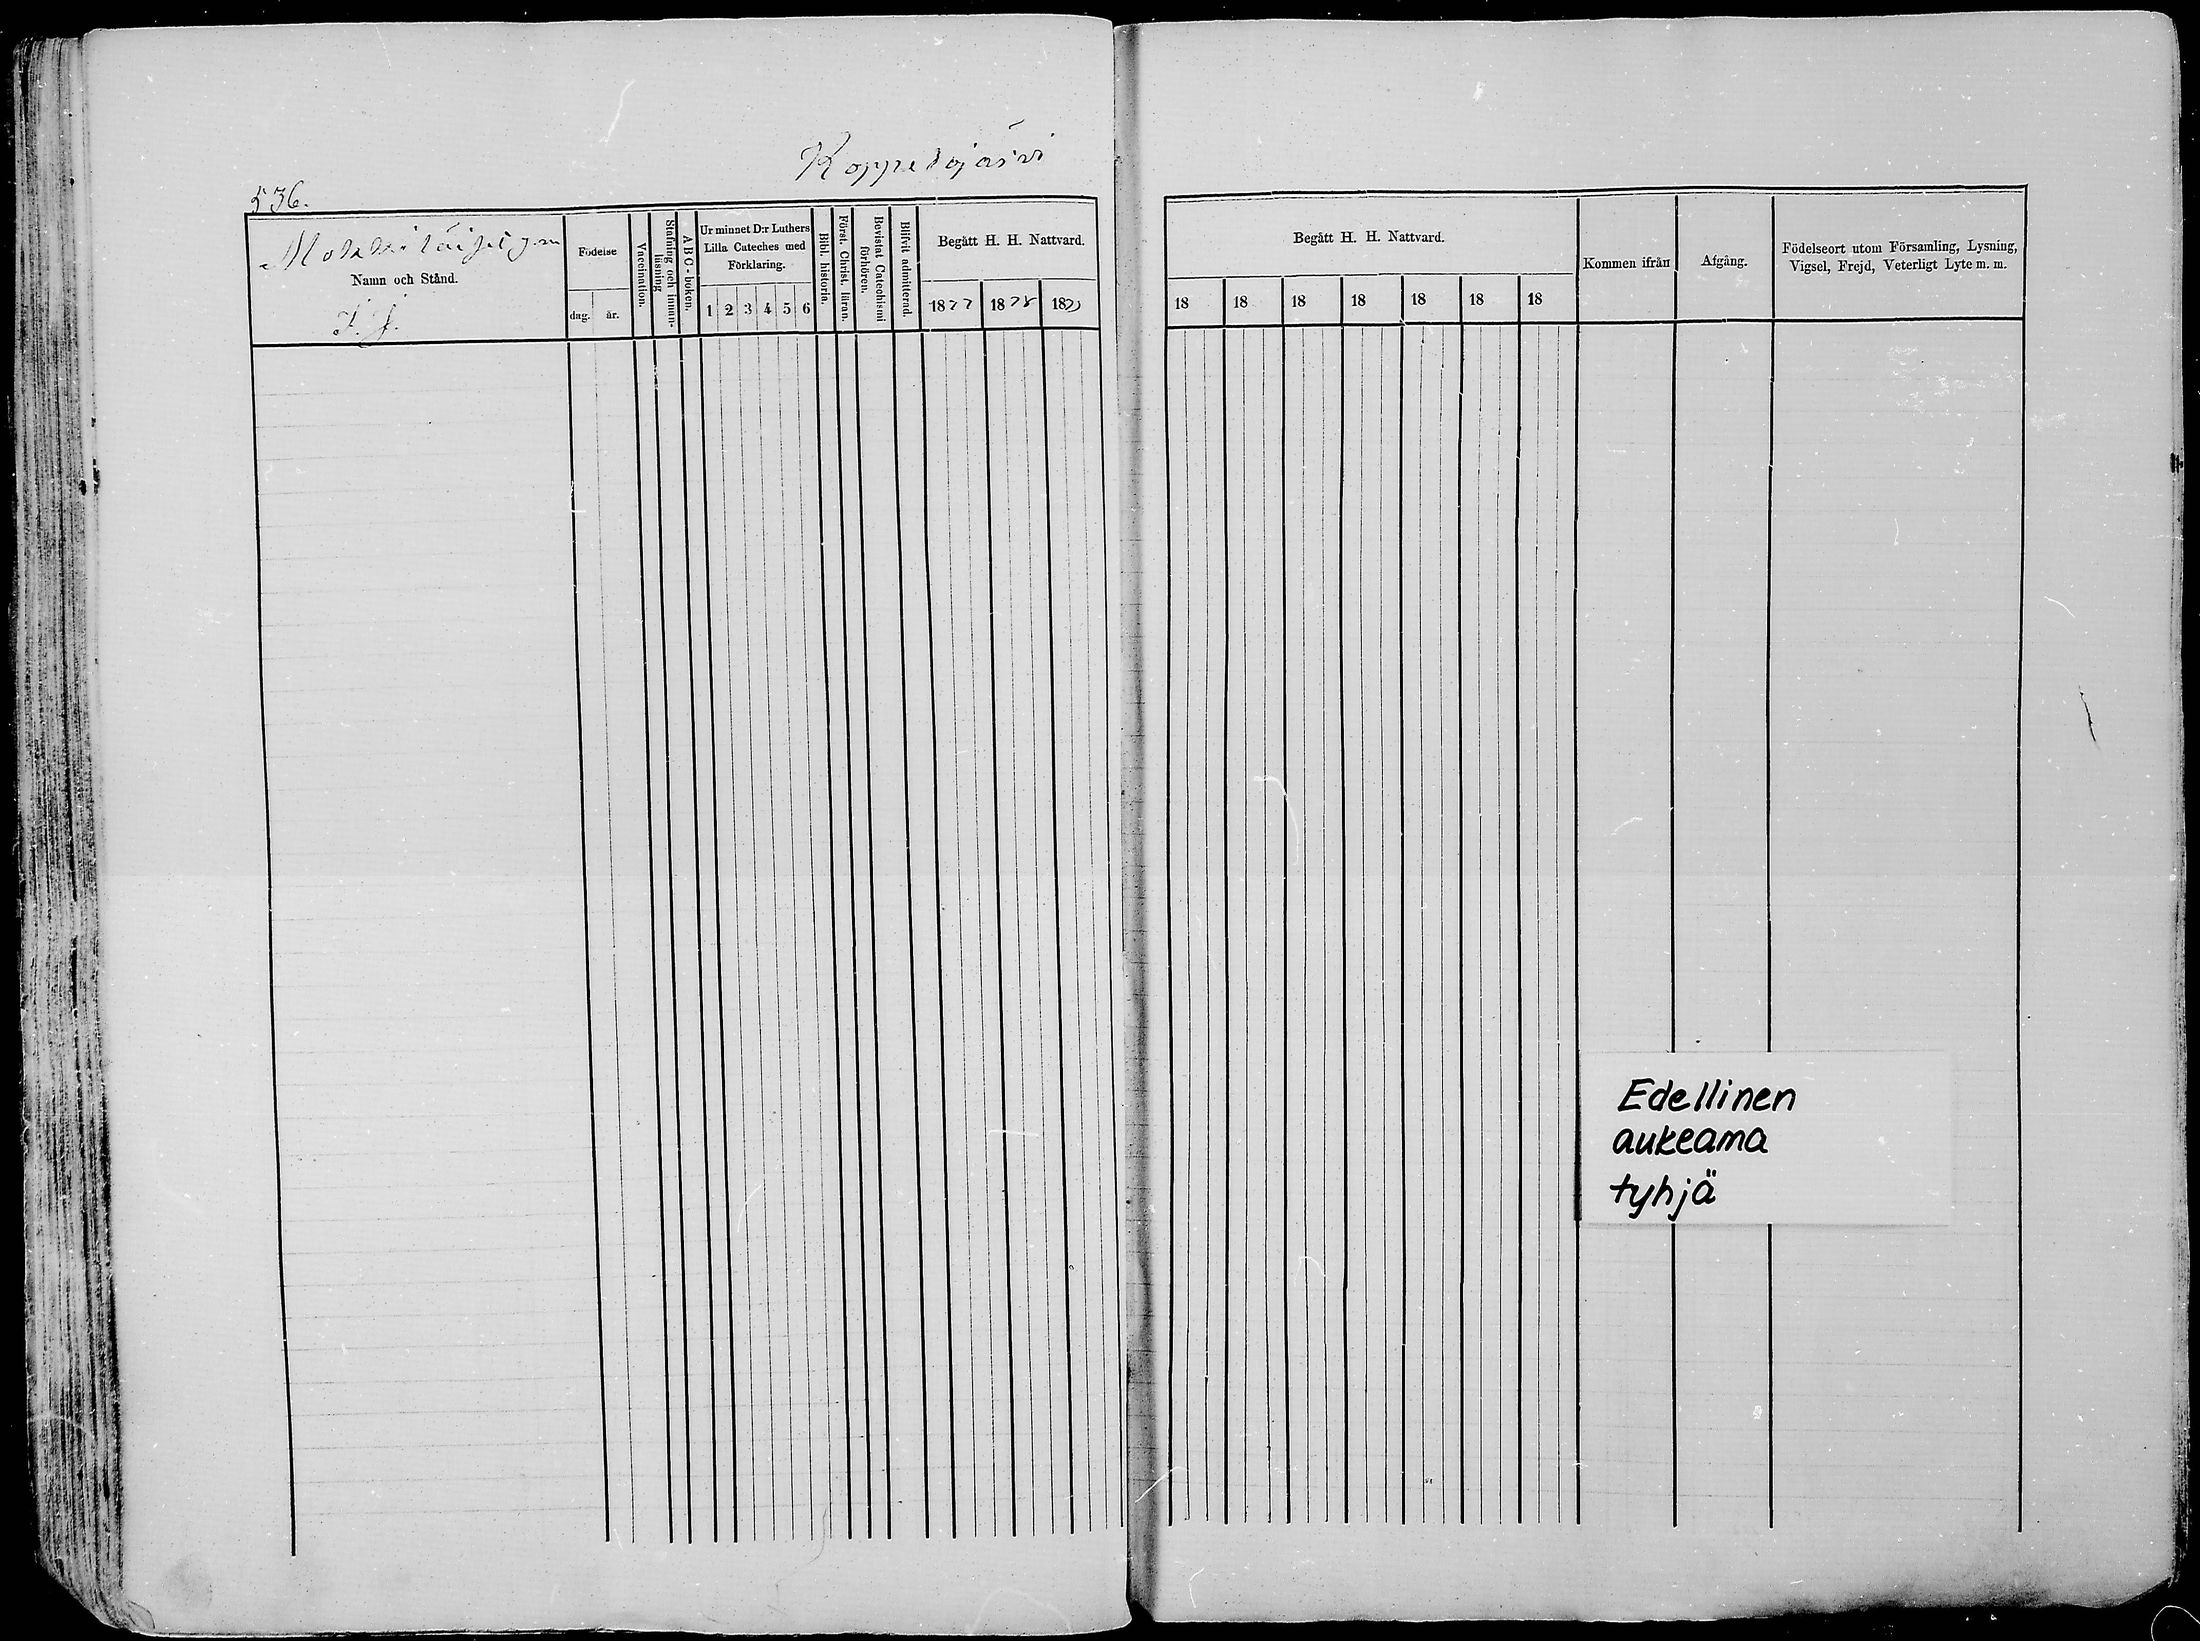 536.
Namn och Stånd.
Födelse
dag. år.
Vaccination.
Stafning och innan-
läsning
ABC-boken.
Ur minnet D:r Luthers
Lilla Cateches med
Förklaring.
1 2 3 4 5 6
Bibl. historia.
Först. Christ. läran.
Bevistat Catechismi
förhören.
Blifvit admitterad.
Begått H. H. Nattvard.
1877 1878 18
Begått H. H. Nattvard.
18 18 18 18 18 18 18
Kommen ifrån
Afgång.
Födelseort utom Församling, Lysning,
Vigsel, Frejd, Veterligt Lyte m. m.
Edellinen
aukeama
tyhjä